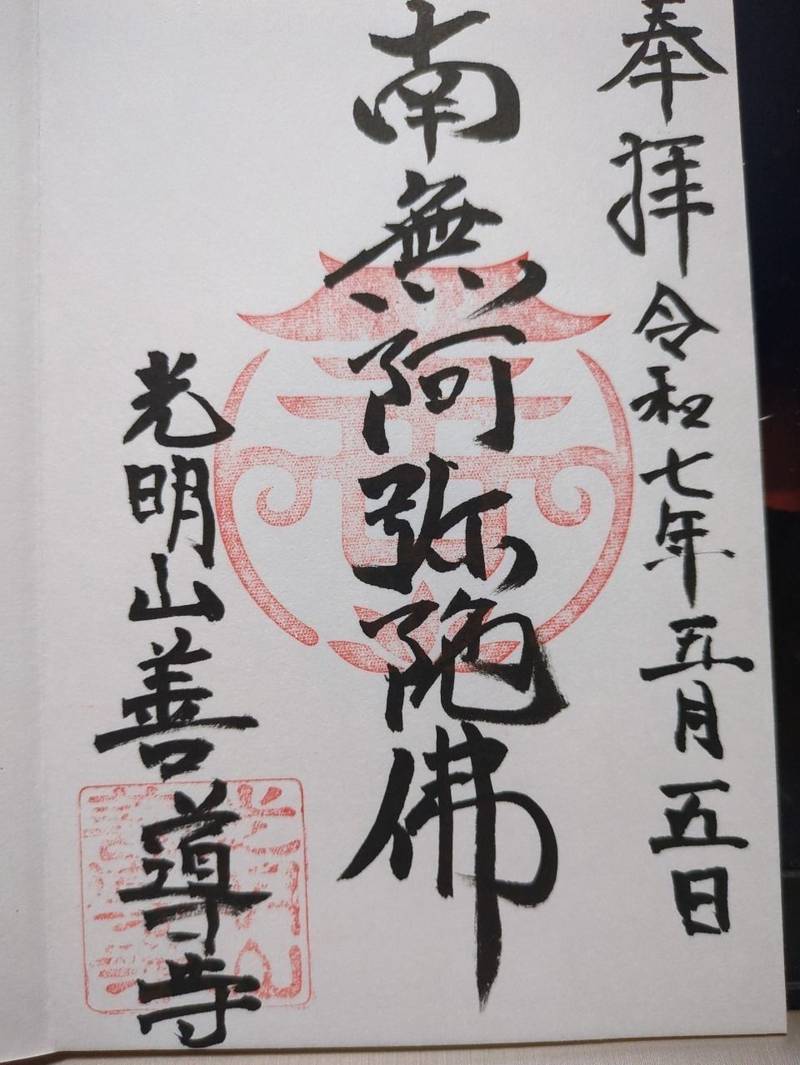 奉拝 令和七年五月五日
南無阿弥陀佛
光明山善導寺